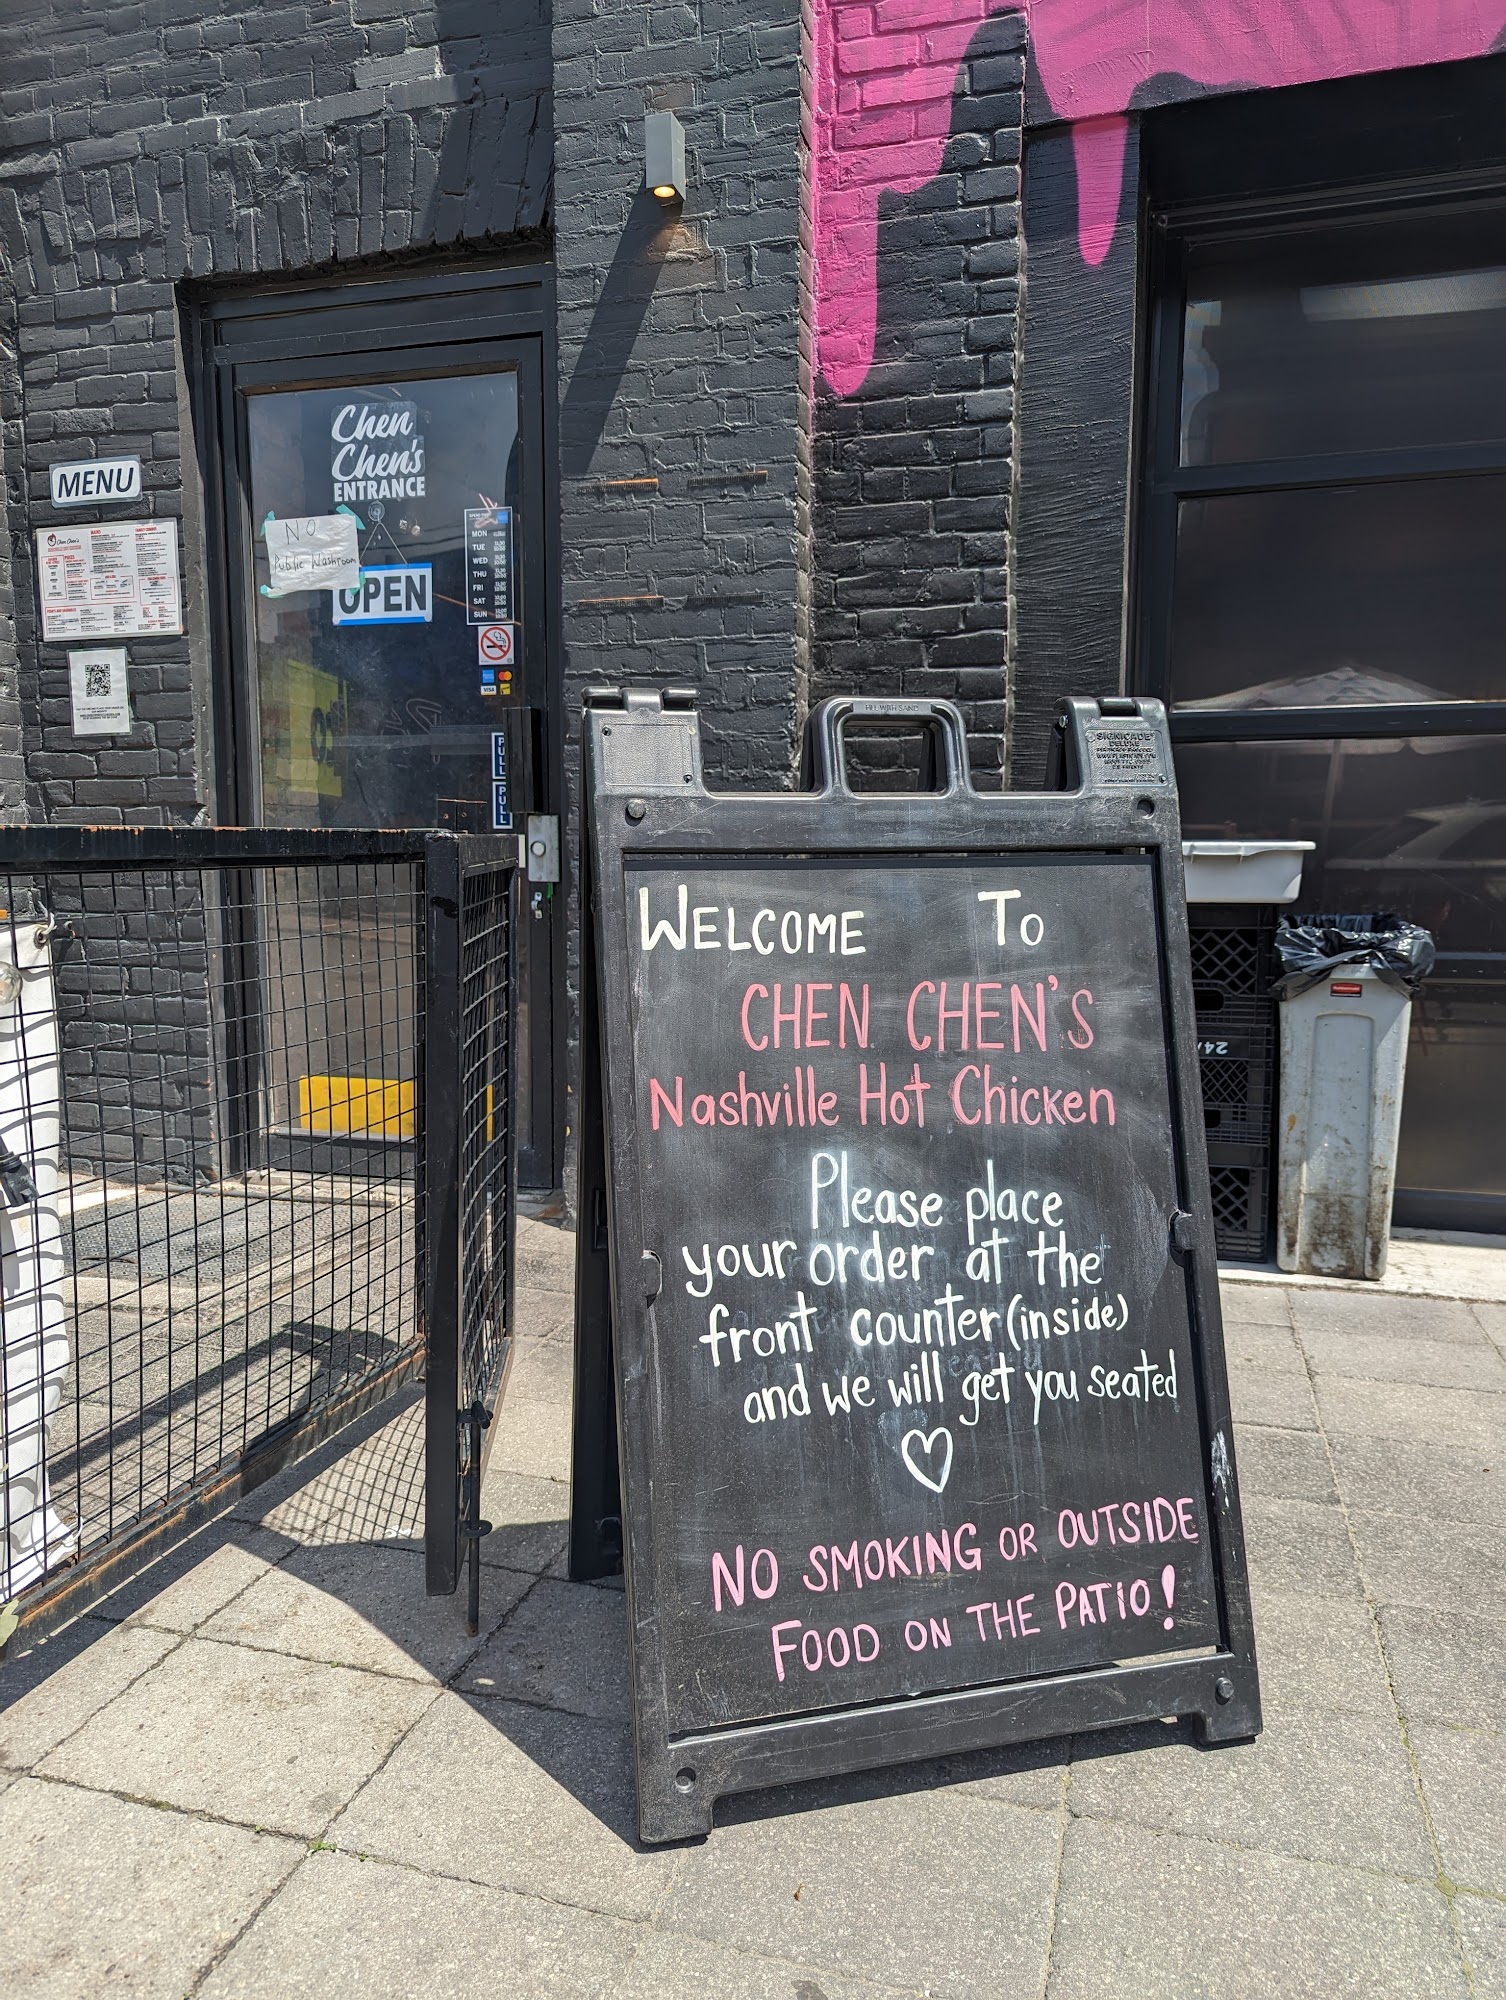 MENU
Chen
Chen's
ENTRANCE
NO
Public Washroom
OPEN
MON
TUE
WED
THU
FRI
SAT
SUN
VISA
PULL
PULL
FILL WITH SAND
SIGNICADE
DELUXE
WELCOME TO
CHEN CHEN'S
Nashville Hot Chicken
Please place
your order at the
front counter (inside)
and we will get you seated
NO SMOKING OR OUTSIDE
FOOD ON THE PATIO!